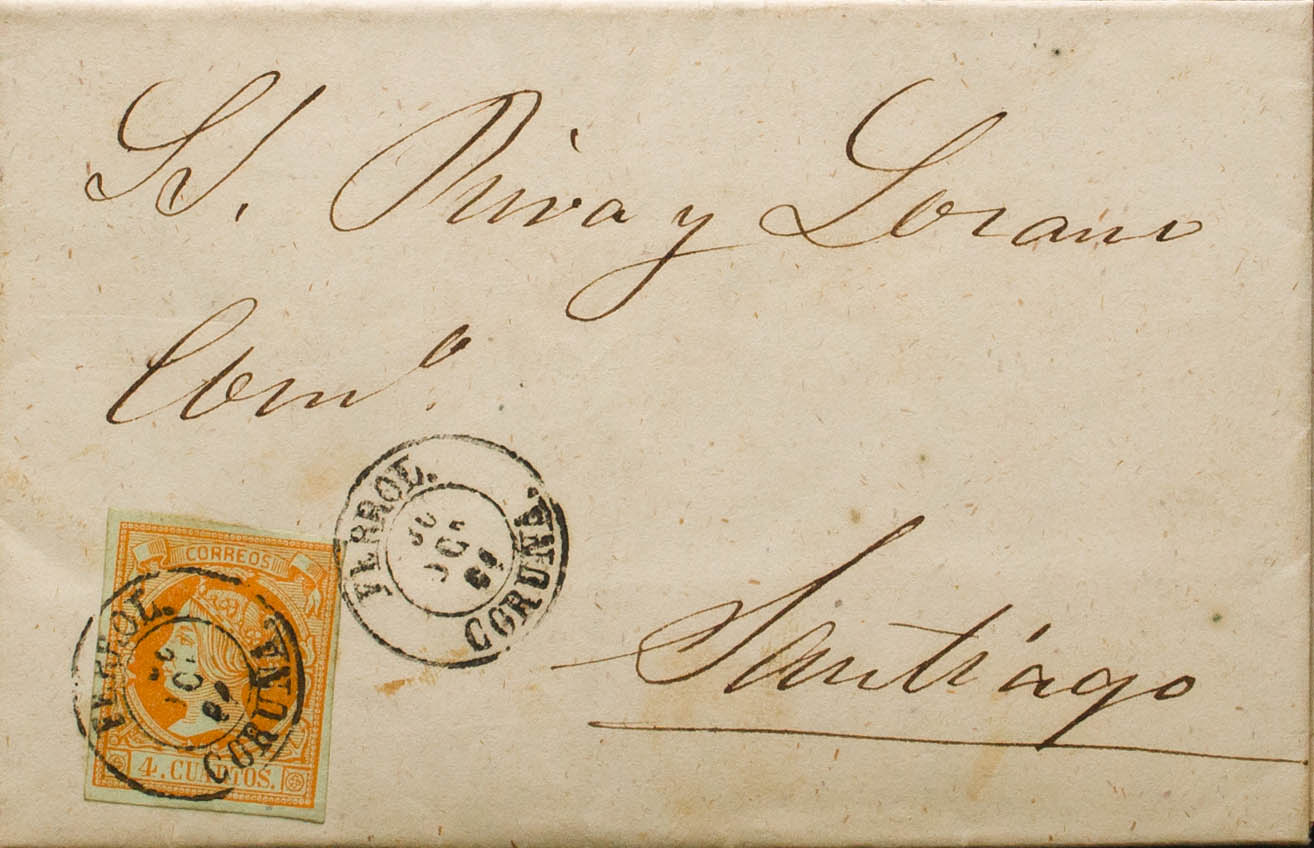 Sr. Riva y Lorano
Com.º
FERROL.
CORUÑA.
CORREOS
FERROL.
CORUÑA.
4. CUARTOS.
Santiago